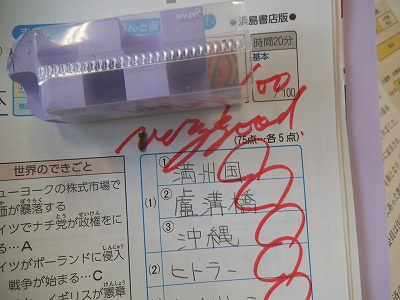 JAPAN
●浜島書店版●
時間20分
基本
100
/100
very good
(75点~各5点)
世界のできごと
ューヨークの株式市場で
価が暴落する
ぼうらく
イツでナチ党が政権をに
とう せいけん
る…A
イツがポーランドに侵入
しんにゅう
戦争が始まる…C
イギリスが憲章
けんしょう
(1)
① 満州国
② 盧溝橋
③ 沖縄
(2) ヒトラー